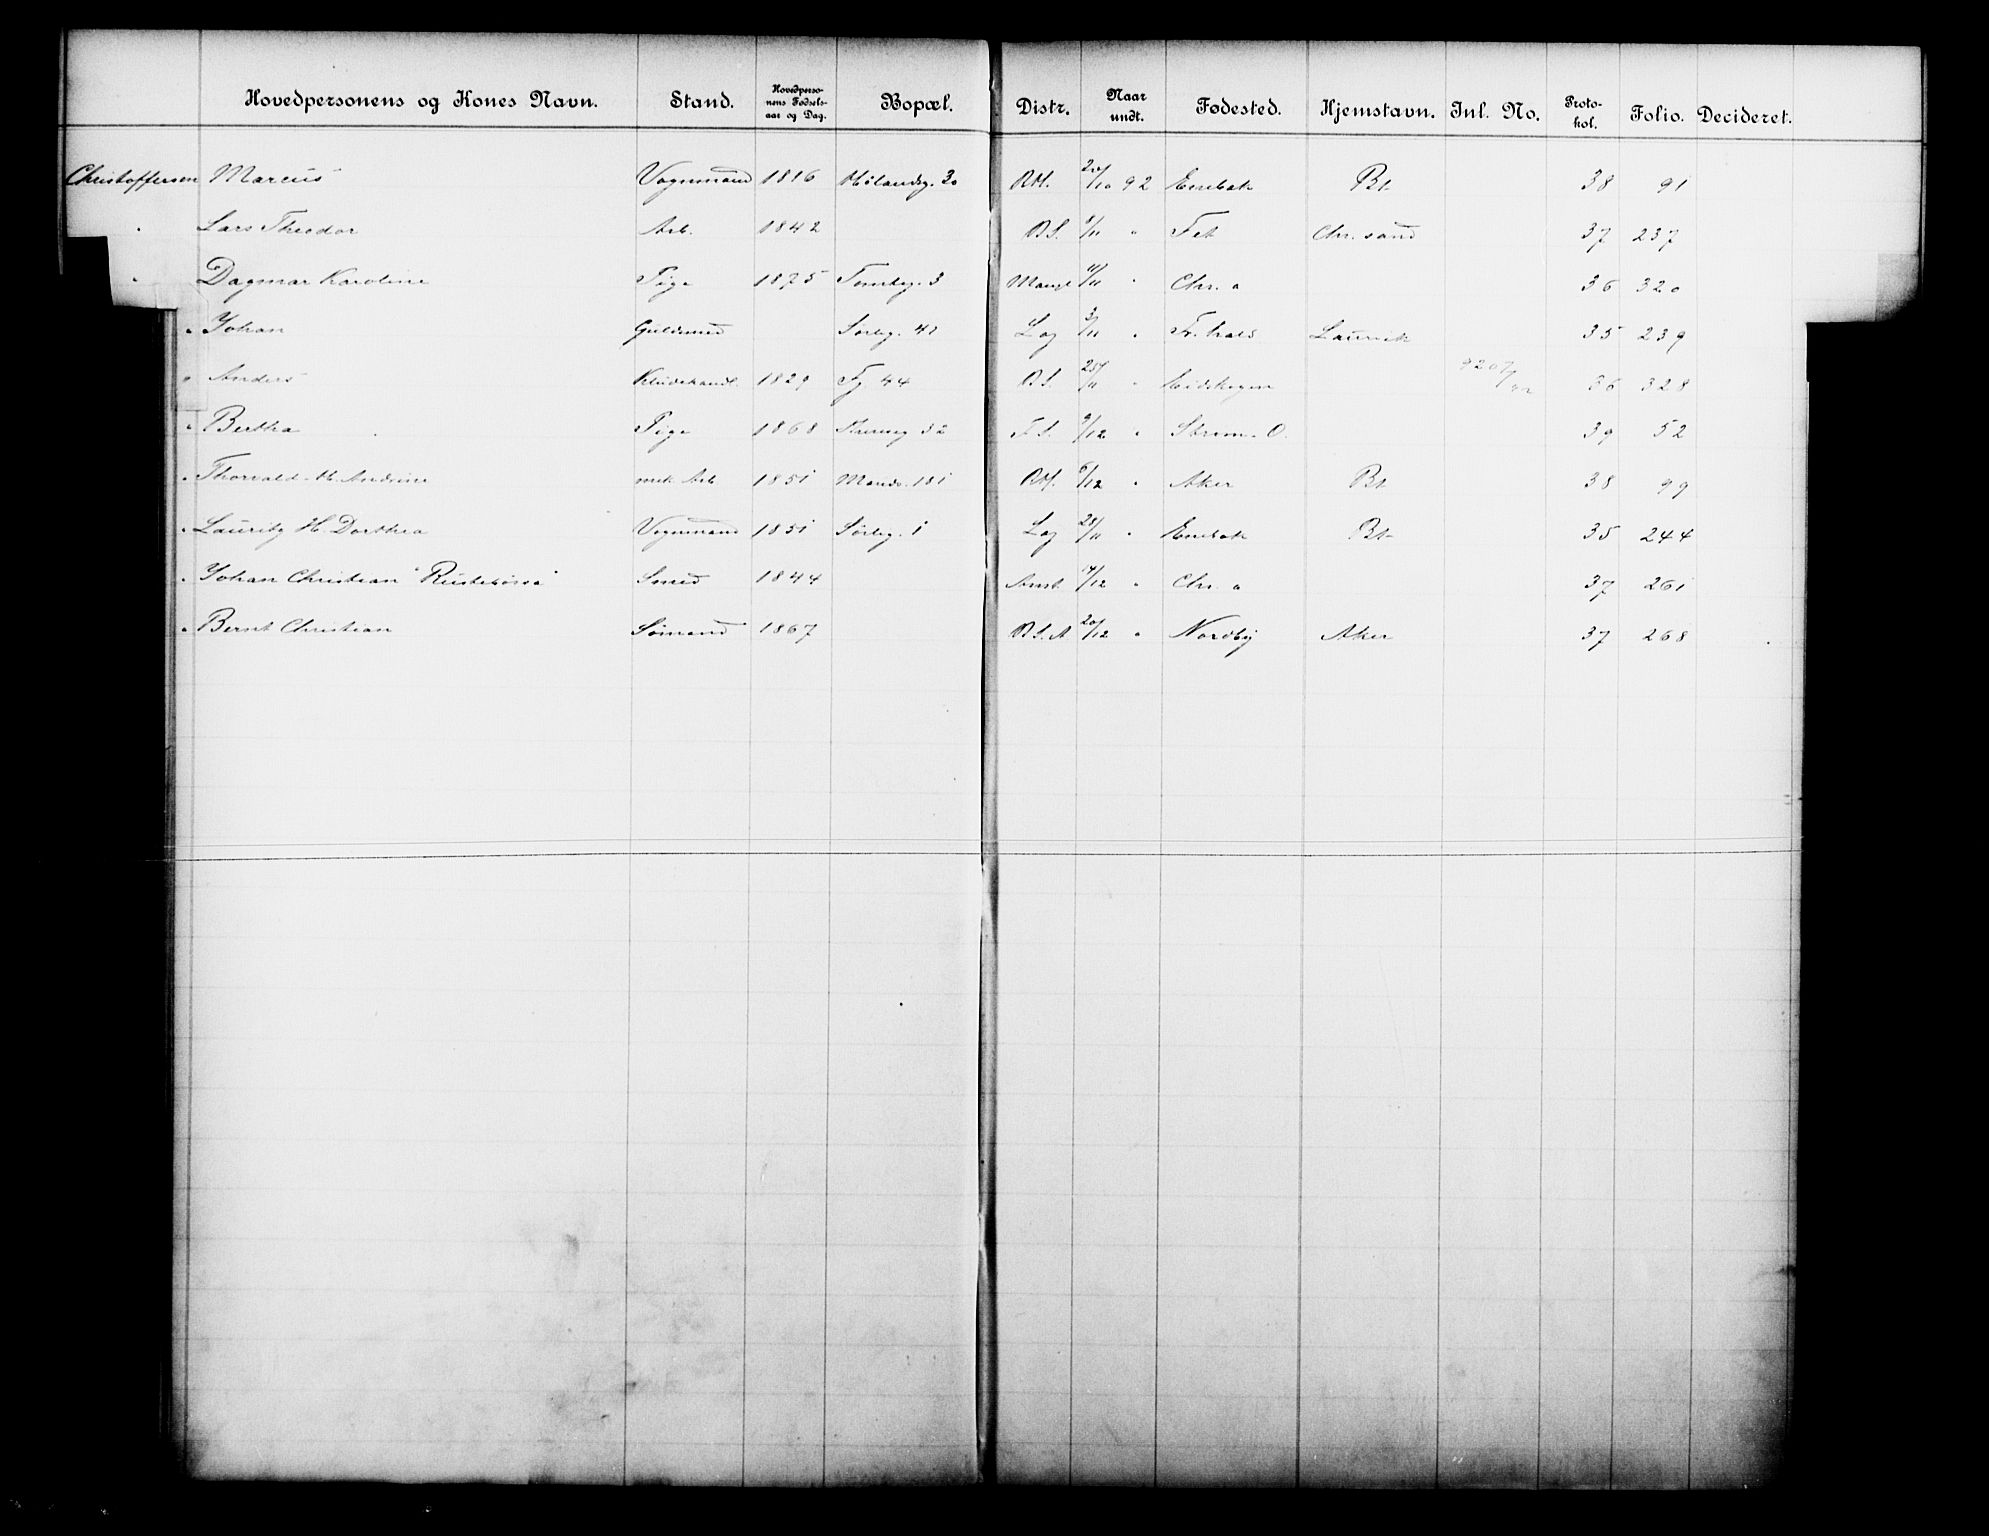 Hovedpersonens og Kones Navn. Stand. Hovedperso-nens Fødsels-aar og Dag. Bopæl. Distr. Naar undt. Fødested. Hjemstavn. Inl. No. Proto-kol. Folio. Decideret.
Christoffersen Marcus Vognmand 1816 Hølandsg. 30 20/10 92 Enebak Bt 38 91
" Lars Theodor Arb. 1842 B.S. 1/11 " Fet Chr. sand 37 237
" Dagmar Karoline Pige 1875 3 Mangl 11/11 " Chr. a 36 320
" Johan Guldsmed Sørbg. 41 Log 3/11 " Fr. hald Laurvik 35 239
" Anders Kludehandl. 1829 44 B.S. 25/11 " Eidskogen 9207/92 36 328
" Bertha Pige 1868 32 F.S. 9/12 " Strøm. O. 39 52
" Thorvald H. Andrine mek Arb 1851 181 6/12 " Aker Bt 38 99
" Lauritz H. Dorthea Vognmand 1851 Sørbg. 1 Log 28/11 " Enebak Bt 35 244
" Johan Christian "Rustebössa" Smed 1844 Amt. 14/12 " Chr. a 37 261
" Bernt Christian Sømand 1867 B.S.A 20/12 " Nordby Aker 37 268